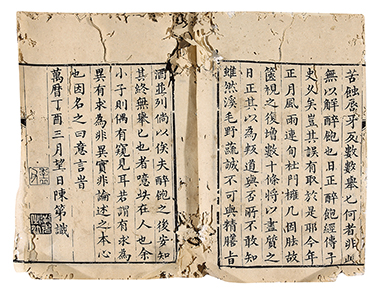 苦蝕牙反數數舉已何者非此
無以解醉飽也日正醉飽經傳子
史久矣豈其誤有取於是耶今年
正月風雨連旬杜門几胠故
篋視之復增數十條將以盡質之
日正其以為叛道與否所不敢知
雖然溪毛野蔌誠不可與精膳旨
酒並列倘以俟夫醉飽之後安知
其終無舉已也者噫在人也余
小子則偶有窺見耳若謂有求為
異有求為非異實非論述之本心
也因名之曰意言昔
萬曆丁酉三月望日陳第識